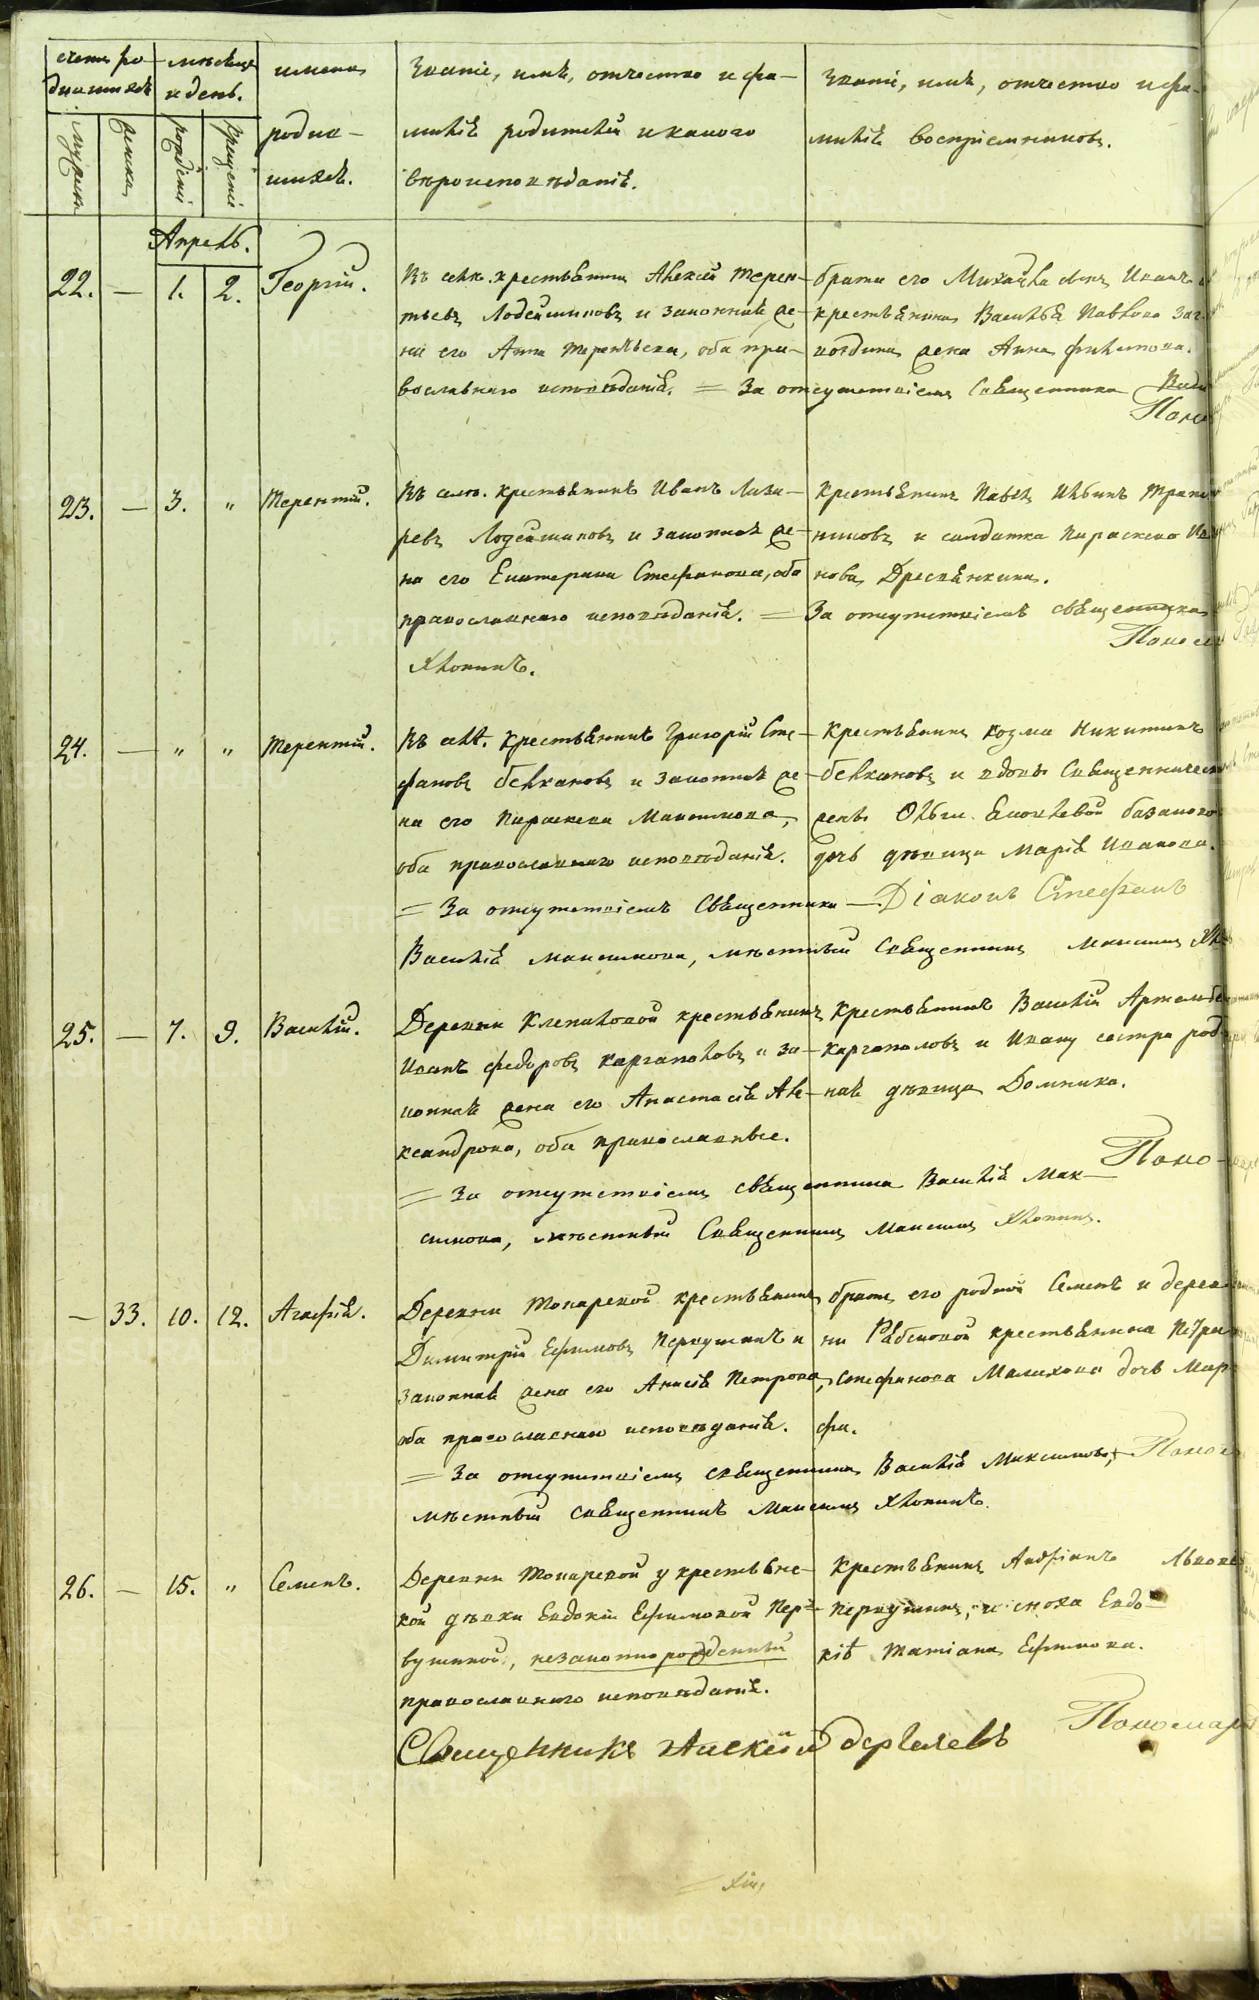 счетъ ро-
дившихся
мѣсяцъ
и день.
имена
родив-
шихся.
Званіе, имя, отчество и фа-
милія родителей и какого
вѣроисповѣданія.
Званіе, имя, отчество и фа-
милія воспріемниковъ.
мужеска
женска
рожденія
крещенія
Апрель.
22. — 1. 2. Георгій.
Въ селѣ. крестьянинъ Алексей Терен-
тьевъ Лодейщиковъ и законная же-
на его Анна Терентьева, оба пра-
вославнаго исповѣданія. = За отсутствіемъ Священника
братъ его Михайла Иванъ
крестьянина Василья Павлова
жена Анна Филипова.
23. — 3. „ Терентій.
Въ селѣ. крестьянинъ Иванъ Лаза-
ревъ Лодейщиковъ и законная же-
на его Екатерина Стефанова, оба
православнаго исповѣданія. = За отсутствіемъ священника
Хлопинъ.
крестьянинъ Павелъ Ильинъ
никовъ и солдатка Параскева
нова Дресвянкина.
24. — „ „ Терентій.
Въ селѣ. крестьянинъ Григорій Сте-
фановъ Белкановъ и законная же-
на его Параскева Максимова,
оба православнаго исповѣданія.
= За отсутствіемъ Священника — Діаконъ Стефанъ
Василія Максимова, мѣстный Священникъ Максимъ
крестьянинъ Козма Никитинъ
Белкановъ и вдовы Священнической
жены Ольги
дочь дѣвица Марія Иванова.
25. — 7. 9. Василій.
Деревни Клепиковой крестьянинъ
Иванъ Федоровъ Каргаполовъ и за-
конная жена его Анастасія Але-
ксандрова, оба православные.
= За отсутствіемъ священника Василія Мак-
симова, мѣстный Священникъ Максимъ Хлопинъ.
крестьянинъ Василій
Каргаполовъ и Ивану сестра род-
ная дѣвица Домника.
Поно-
— 33. 10. 12. Агафія.
Деревни Токаревой крестьянинъ
Димитрій Ефимовъ Первушинъ и
законная жена его Анисія Петрова,
оба православнаго исповѣданія.
= За отсутствіемъ священника Василія Максимова,
мѣстный священникъ Максимъ Хлопинъ.
братъ его родной Семенъ и дерев-
ни Рябковой крестьянина
Стефанова Малахова дочь Мар-
фа.
26. — 15. „ Семенъ.
Деревни Токаревой у крестьянс-
кой дѣвки Евдокіи Ефимовой Пер-
вушиной, незаконнорожденный
православнаго исповѣданія.
крестьянинъ Андріанъ
Первушинъ, и сноха Евдо-
кіѣ Татіана Ефимова.
Пономарь
Священникъ Алексѣй